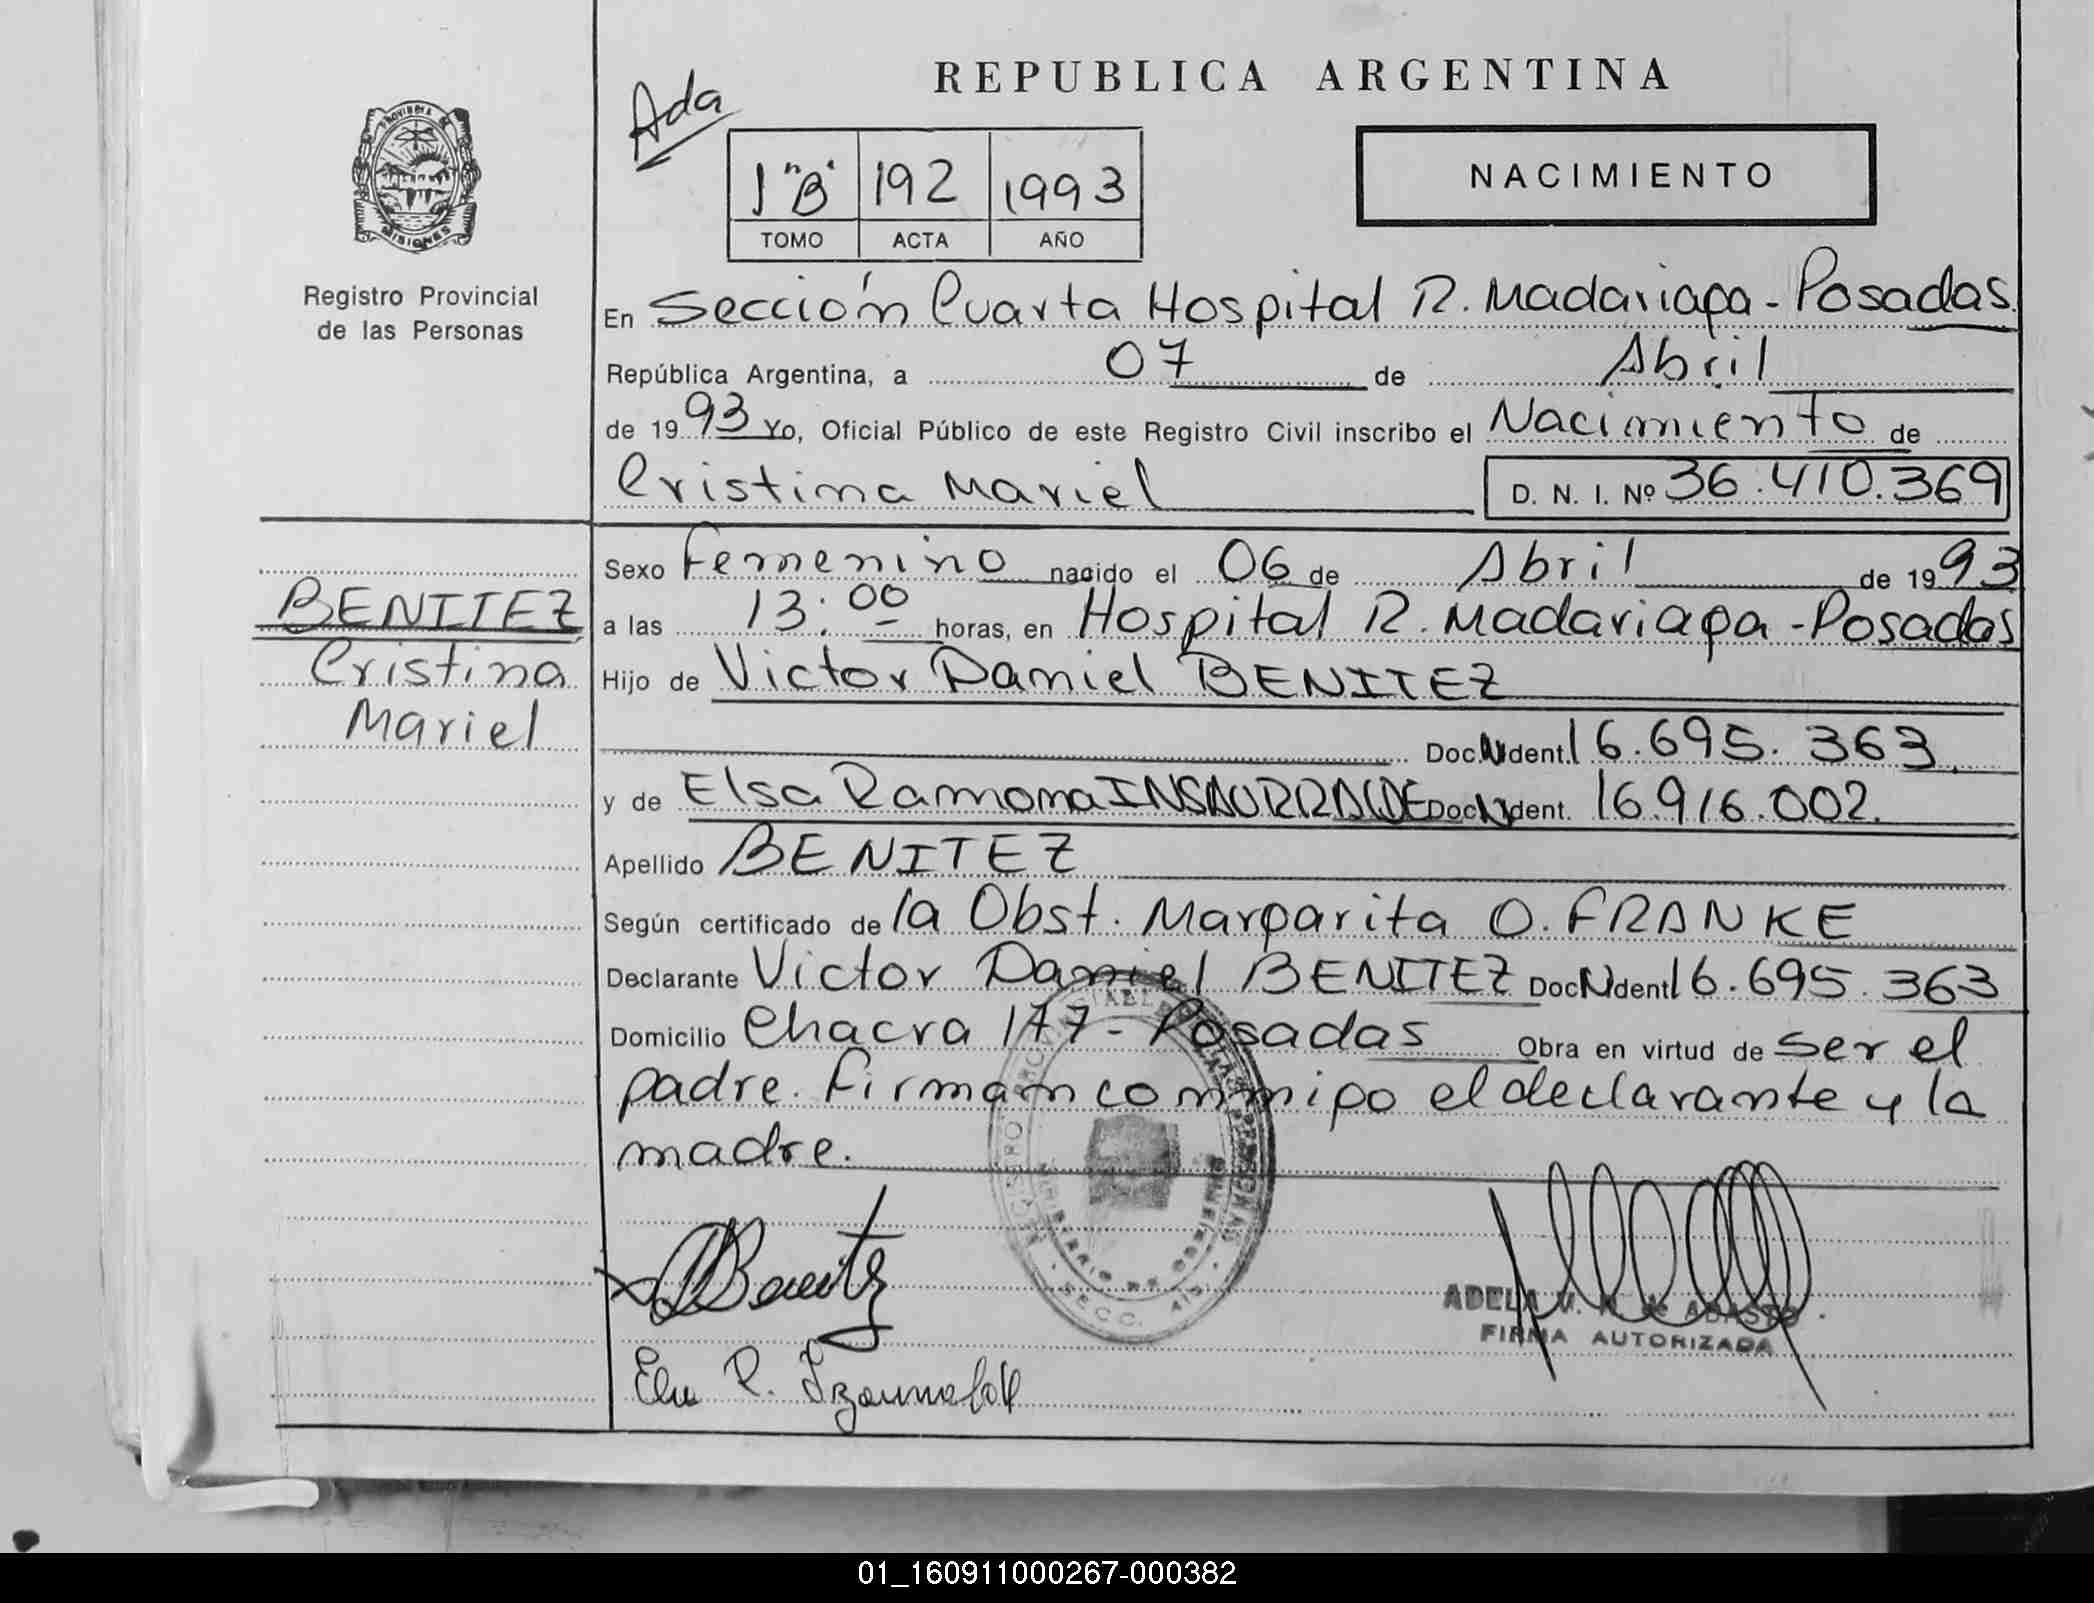 REPUBLICA ARGENTINA
Ada
1 "B" 192 1993
TOMO ACTA AÑO
NACIMIENTO
PROVINCIA DE MISIONES
Registro Provincial
de las Personas
En Sección Cuarta Hospital R. Madariaga - Posadas
República Argentina, a 07 de Abril
de 1993 Yo, Oficial Público de este Registro Civil inscribo el Nacimiento de
Cristina Mariel D. N. I. Nº 36.410.369
BENITEZ
Cristina
Mariel
Sexo Femenino nacido el 06 de Abril de 1993
a las 13:00 horas, en Hospital R. Madariaga - Posadas
Hijo de Victor Daniel BENITEZ
Doc. N Ident. 16.695.363
y de Elsa Ramona INSAURRALDE Doc. N Ident. 16.916.002.
Apellido BENITEZ
Según certificado de la Obst. Margarita O. FRANKE
Declarante Victor Daniel BENITEZ Doc N Ident 16.695.363
Domicilio Chacra 177 - Posadas Obra en virtud de ser el
padre. Firman conmigo el declarante y la
madre.
Benitz
REGISTRO PROVINCIAL DE LAS PERSONAS
MINISTERIO DE GOBIERNO
SECC. 4
ADELA V.
FIRMA AUTORIZADA
01_160911000267-000382